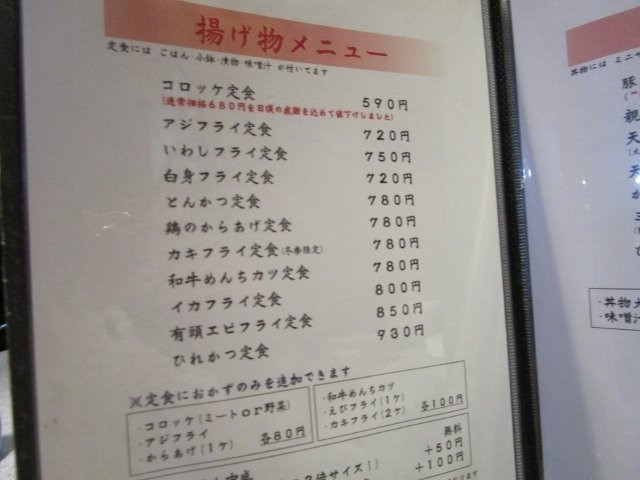 揚げ物メニュー
定食には ごはん・小鉢・漬物・味噌汁 が付いてます
コロッケ定食 590円
(通常価格680円を日頃の感謝を込めて値下げしました)
アジフライ定食 720円
いわしフライ定食 750円
白身フライ定食 720円
とんかつ定食 780円
鶏のからあげ定食 780円
カキフライ定食(冬季限定) 780円
和牛めんちカツ定食 780円
イカフライ定食 800円
有頭エビフライ定食 850円
ひれかつ定食 930円
※定食におかずのみを追加できます
・コロッケ(ミートor野菜)
・アジフライ
・からあげ(1ケ) 各80円
・和牛めんちカツ
・えびフライ(1ケ)
・カキフライ(2ケ) 各100円
無料
+50円
倍サイズ!) +100円
丼物には ミニサ
豚
親
天
天
・丼物
・味噌汁